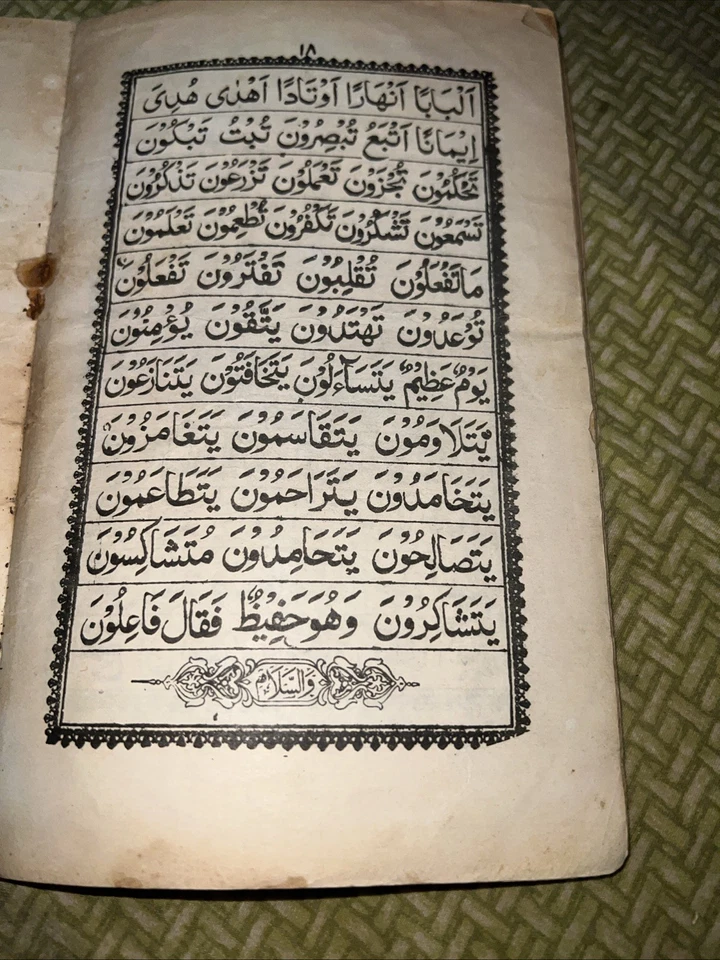 ١٨
اَلْبَابًا اَنْهَارًا اَوْتَادًا اَهْدٰى هُدِىَ
اِيْمَانًا اَتْبَعُ تُبْصِرُوْنَ تُبْتُ تَبْكُوْنَ
تَحْلُمُوْنَ تُجْزَوْنَ تَعْمَلُوْنَ تَزْرَعُوْنَ تَذْكُرُوْنَ
تَسْمَعُوْنَ تَشْكُرُوْنَ تَكْفُرُوْنَ تُطْعِمُوْنَ تَعْلَمُوْنَ
مَاتَفْعَلُوْنَ تُقْلِبُوْنَ تَفْتَرُوْنَ تَفْعَلُوْنَ
تُوْعَدُوْنَ تَهْتَدُوْنَ يَتَّقُوْنَ يُؤْمِنُوْنَ
يَوْمٌ عَظِيْمٌ يَتَسَآءَلُوْنَ يَتَخَافَتُوْنَ يَتَنَازَعُوْنَ
يَتَلَاوَمُوْنَ يَتَقَاسَمُوْنَ يَتَغَامَزُوْنَ
يَتَخَامَدُوْنَ يَتَرَاحَمُوْنَ يَتَطَاعَمُوْنَ
يَتَصَالِحُوْنَ يَتَحَامِدُوْنَ مُتَشَاكِسُوْنَ
يَتَشَاكِرُوْنَ وَهُوَحَفِيْظٌ فَقَالَ فَاعِلُوْنَ
وَالسَّلَامُ